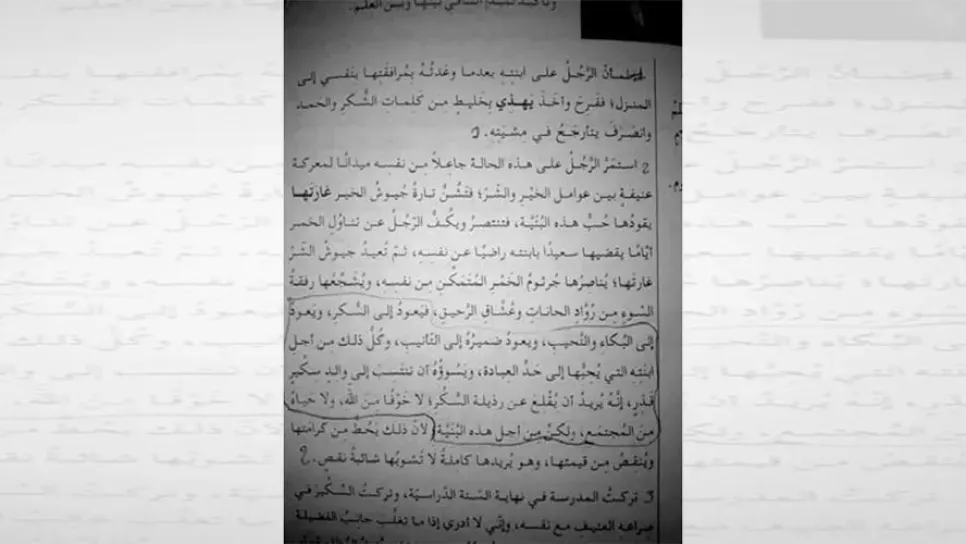 وتأكيد لمبدإ التنافي بينها وبين العلم.
1 اطمأنّ الرّجُلُ على ابنتِهِ بعدما وعَدتُهُ بمُرافقَتِها بنَفسي إلى
المنزل؛ ففَرِحَ وأخَذَ يَهذي بخَليطٍ مِن كَلِماتِ الشُّكرِ والحَمدِ
وانصَرَفَ يتأرجَحُ في مِشيَتِهِ. 1
2 استَمَرَّ الرَّجُلُ على هذه الحالة جاعِلاً مِن نفسِه مَيدانًا لمعركة
عنيفةٍ بين عوامل الخَيْرِ والشّرّ؛ فتَشُنُّ تارةً جُيوشُ الخير غارَتَها
يقودُها حُبُّ هذه البُنَيَّة، فتنتصرُ ويكُفُّ الرّجُلُ عن تناوُلِ الخمر
أيّامًا يقضيها سعيدًا بابنته راضيًا عن نفسِه، ثمّ تُعيدُ جيوشُ الشّرّ
غارتَها؛ يُناصِرُها جُرثومُ الخَمْرِ المُتَمَكِّن مِن نفسِه، ويُشَجِّعُها رفقةُ
السّوءِ مِن رُوَّادِ الحاناتِ وعُشّاقِ الرّحيقِ، فيَعودُ إلى السُّكرِ، ويَعودُ
إلى البُكاءِ والنَّحيبِ، ويعودُ ضَميرُهُ إلى التّأنيبِ، وكُلُّ ذلك مِن أجلِ
ابنَتِه التي يُحبُّها إلى حَدِّ العِبادة، ويَسوؤُهُ أن تنتَسِبَ إلى والدٍ سِكّيرٍ
قَذِرٍ، إنَّهُ يُريدُ أن يُقْلِعَ عن رذيلة السُّكْر؛ لا خَوْفًا مِن الله، ولا حَياءً
مِنَ المُجتمَعِ، ولكِنْ مِن أجل هذه البُنَيَّة؛ لأنّ ذلك يَحُطُّ مِن كرامَتِها
ويُنقِصُ مِن قيمتِها، وهو يُريدها كاملةً لا تَشوبُها شائبةُ نقصٍ. 2
3 تركتُ المدرسة في نهاية السّنة الدّراسيّة، وتركتُ السّكّيرَ في
صراعِه العنيفِ مع نفسه، وإنّني لا أدري إذا ما تغلّب جانبُ الفضيلة